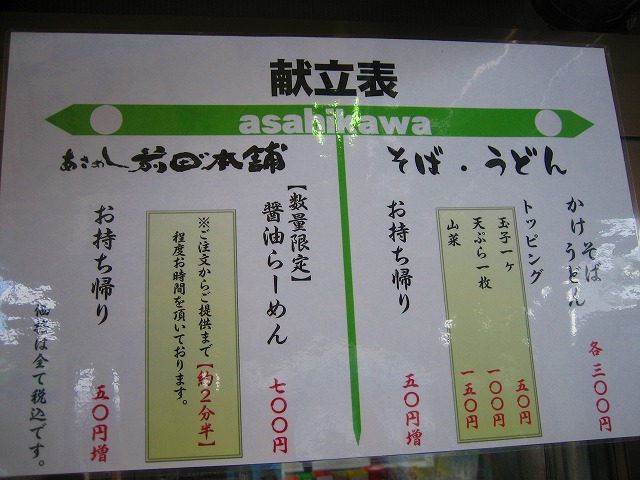 献立表
asahikawa
そば・うどん
かけそば
うどん
各三〇〇円
トッピング
玉子一ヶ 五〇円
天ぷら一枚 一〇〇円
山菜 一五〇円
お持ち帰り 五〇円増
あさめし前田本舗
【数量限定】
醤油らーめん 七〇〇円
※ご注文からご提供まで【約2分半】
程度お時間を頂いております。
お持ち帰り 五〇円増
価格は全て税込です。